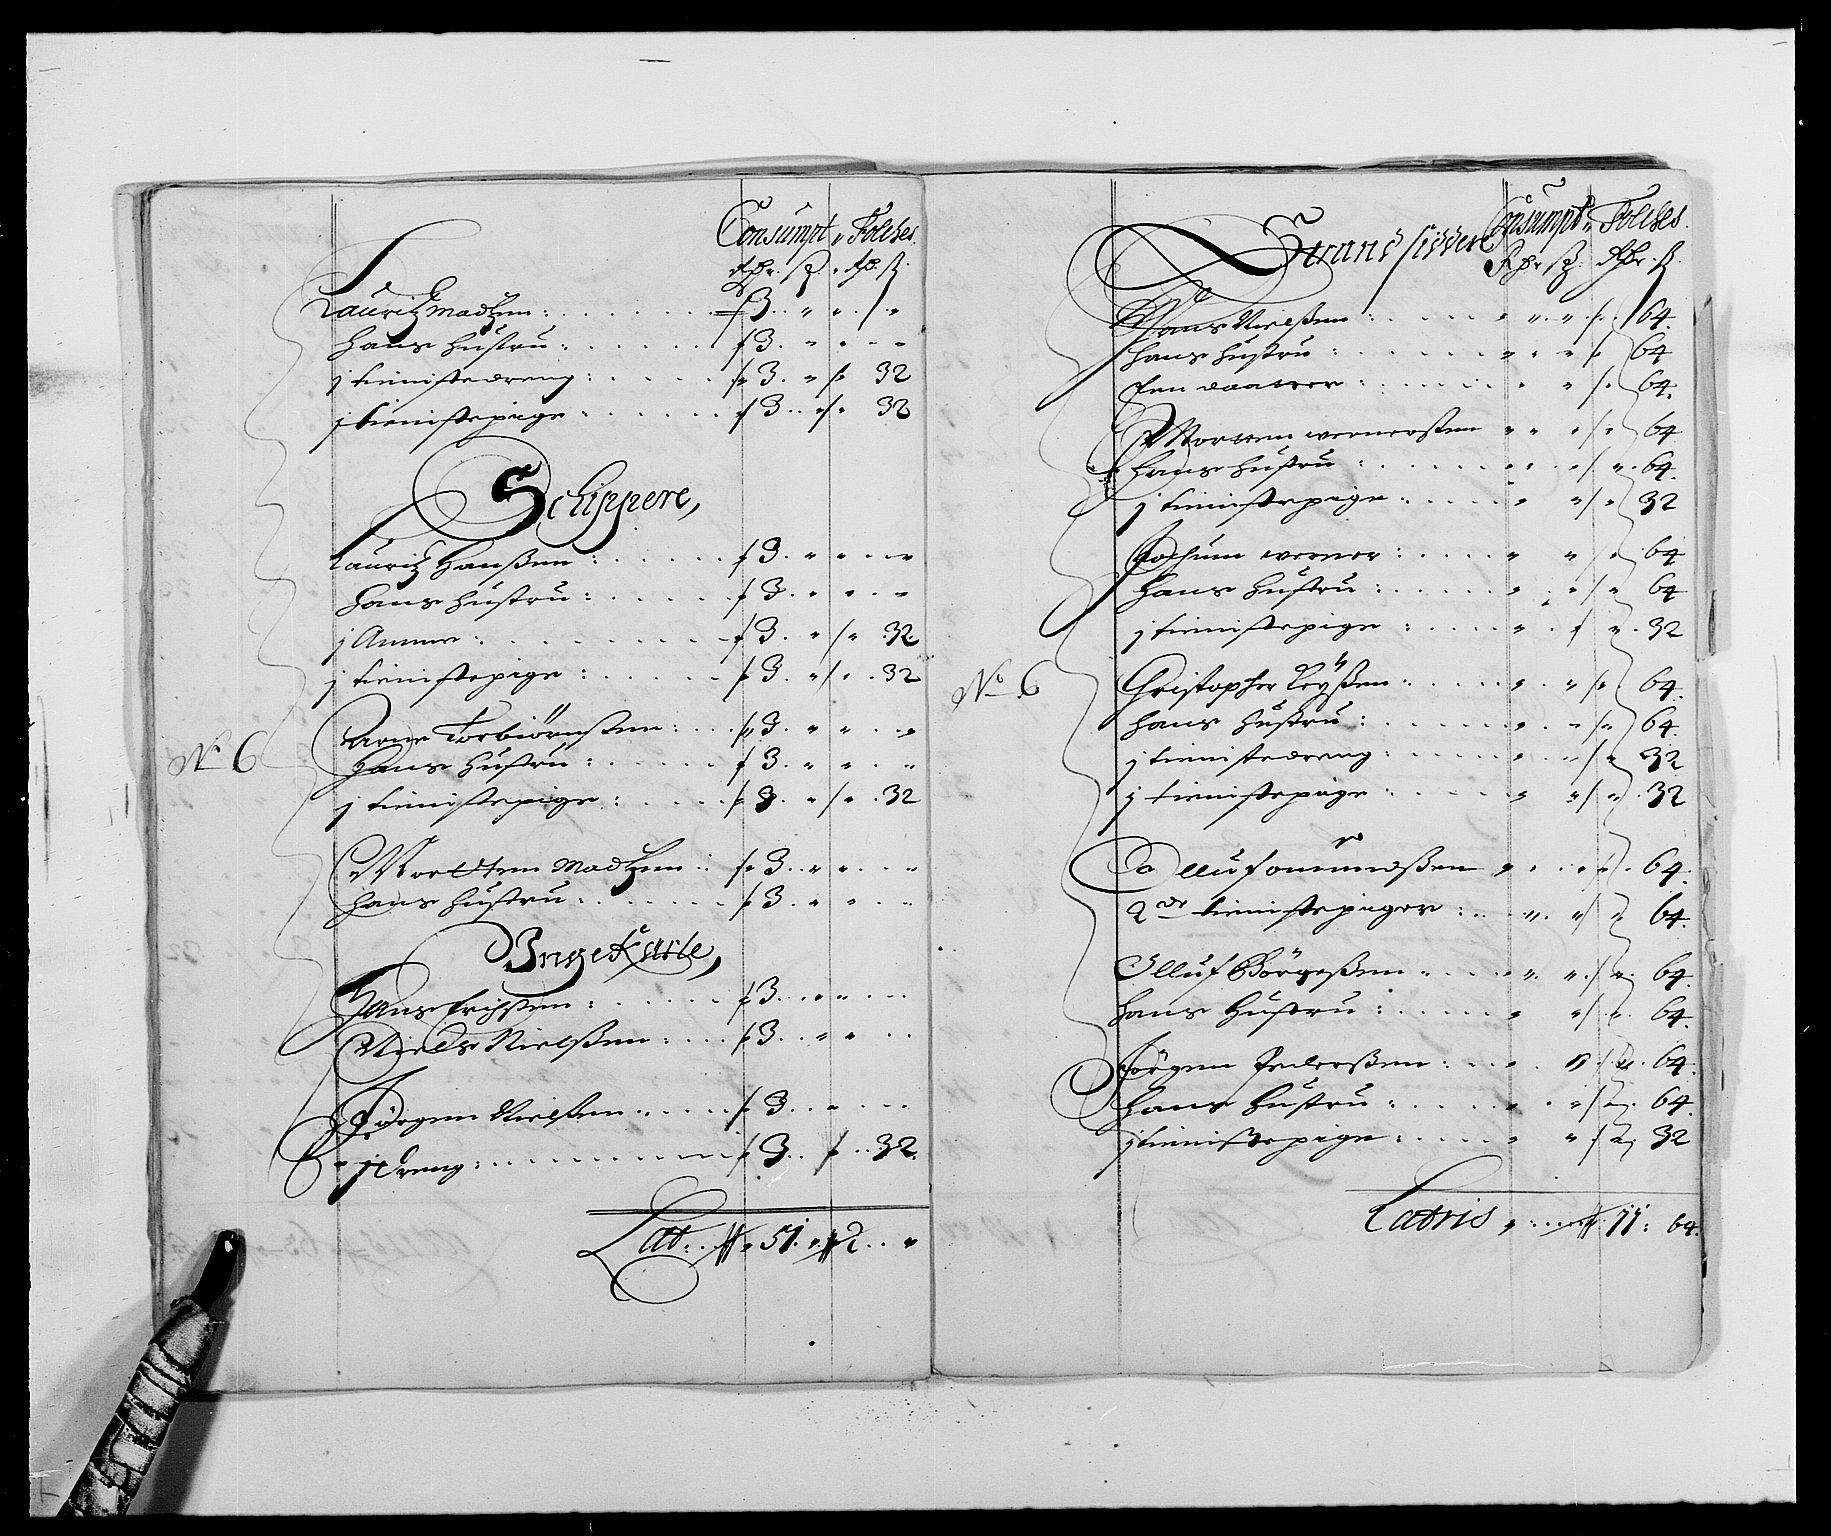 Consumpt „ Folches.
Rdr. ß. „ Rd. ß.
Lauritz Madtzen: 3 „ „ „
Hans Hustru: 3 „ „ „
j tienistedreng: 3 „ „ 32
j tienistepige: 3 „ „ 32
Schippere,
Lauritz Hanßen: 3 „ „ „
Hans Hustru: 3 „ „ „
j Amme: 3 „ „ 32
j tienistepige: 3 „ „ 32
Arne Torbiörnßen: 3 „ „ „
Hans Hustru: 3 „ „ „
No 6
j tienistepige: 3 „ „ 32
Morten Madtzen: 3 „ „ „
Hans Hustru: 3 „ „ „
Unge Karle,
Hans Erichßen: 3 „ „ „
Niels Nielßen: 3 „ „ „
Jörgen Nielßen: 3 „ „ „
j dreng: 3 „ 32
Lat: 51 „ 2 „
Strand siddere
Consumpt „ Folches.
Rdr ß. Rdr. ß.
Hans Nielßen: „ „ „ 64
Hans Hustru: „ „ „ 64
En daatter: „ „ „ 64
Morten wernerßen „ „ „ 64
Hans Hustru: „ „ „ 64
j tienistepige: „ „ „ 32
Jochum werner: „ „ „ 64
Hans Hustru: „ „ „ 64
j tienistepige: „ „ „ 32
No 6
Christopher Leyßen: „ „ „ 64
Hans Hustru: „ „ „ 64
j tienistedreng: „ „ „ 32
j tienistepige: „ „ „ 32
Olluf Omundßen „ „ „ 64
2de tienistepiger: „ „ „ 64
Olluf Börgeßen: „ „ „ 64
Hans Hustru: „ „ „ 64
Jörgen Pederßen: „ „ „ 64
Hans Hustru: „ „ „ 64
j tienistepige: „ „ „ 32
Latris „ 11: 64